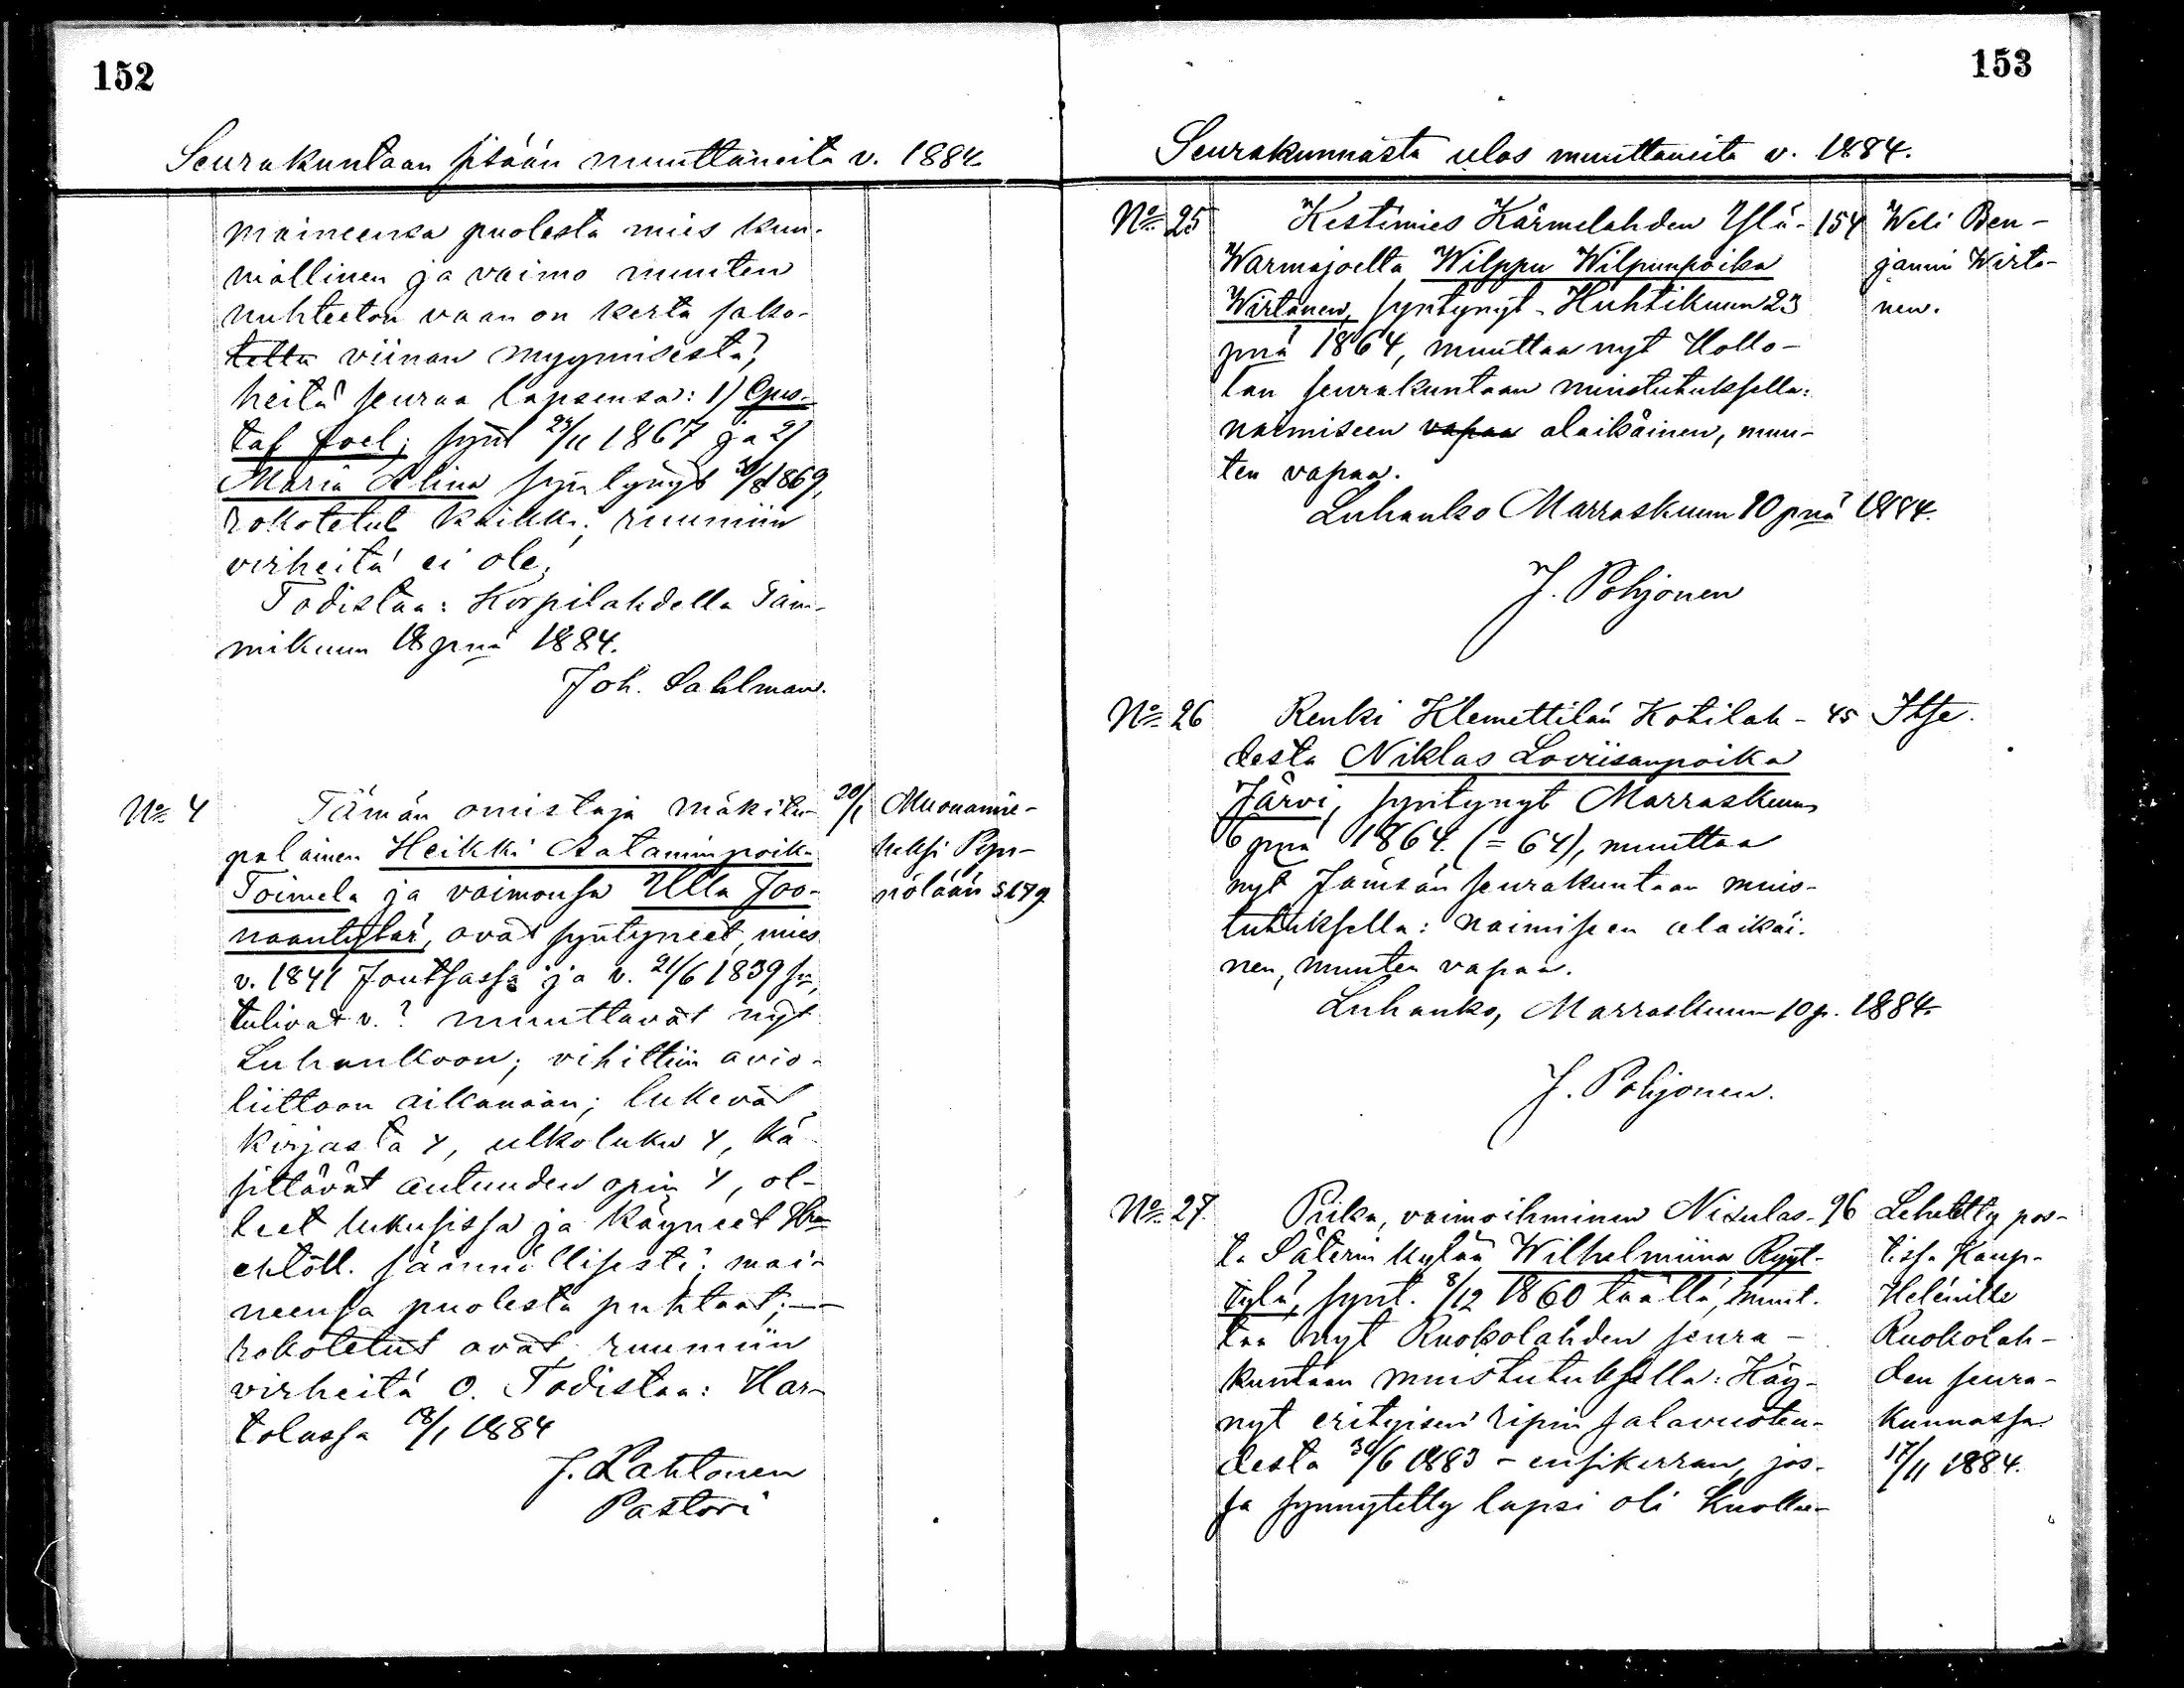 152
Seurakuntaan sisään muuttaneita v. 1884
maineensa puolesta mies kun-
niallinen ja vaimo muuten
nuhteeton vaan on kerta sako-
tettu viinan myymisestä;
heitä seuraa lapsensa: 1) Gus-
taf Joel; synt 24/11 1867 ja 2)
Maria Alina syntynyt 30/8 1869,
rokotetut kaikki; ruumiin
virheitä ei ole;
Todistaa: Korpilahdella Tam-
mikuun 18 pnä 1884.
Joh. Sahlman.
No 4
Tämän omistaja mäkitu-
20/1
Muonamie-
palainen Heikki Aataminpoika
heksi Pyn-
Toimela ja vaimonsa Ulla Joo-
nölään S 179
naantytär, ovat syntyneet, mies
v. 1841 Joutsassa ja v. 21/6 1839 sn,
tulivat v.? muuttavat nyt
Luhankoon; vihittiin avio-
liittoon aikanaan; lukevat
kirjasta 4, ulkoluku 4, kä-
sittävät autuuden opin 4, ol-
leet lukusissa ja käyneet Hran
ehtoll. säännöllisesti; mai-
neensa puolesta puhtaat; —
rokotetut ovat ruumiin
virheitä 0. Todistaa: Har-
tolassa 18/1 1884
J. Lahtonen
Pastori
153
Seurakunnasta ulos muuttaneita v. 1884.
No 25
Kestimies Kärmelahden Ylä-
154
Weli Ben-
Warmajoelta Wilppu Wilpunpoika
jamin Wirta-
Wirtanen, syntynyt Huhtikuun 23
nen.
pnä 1864, muuttaa nyt Hollo-
lan seurakuntaan muistutuksella:
naimiseen vapaa alaikäinen, muu-
ten vapaa.
Luhanko Marraskuun 10 pnä 1884.
J. Pohjonen
No 26
Renki Klemettilän Kotilah-
45
Itse.
desta Niklas Loviisanpoika
Järvi, syntynyt Marraskuun
6 pnä 1864. (= 64), muuttaa
nyt Jämsän seurakuntaan muis-
tutuksella: naimiseen alaikäi-
nen, muuten vapaa.
Luhanko, Marraskuun 10 p. 1884.
J. Pohjonen.
No 27.
Piika, vaimoihminen Nisulas-
96
Lehetetty pos-
ta Säterin kylää Wilhelmiina Ryyt-
tissa Kaup.
tylä, synt. 8/12 1860 täällä, muut-
Helénille
taa nyt Ruokolahden seura-
Ruokolah-
kuntaan muistutuksella: Käy-
den seura-
nyt erityisen ripin salavuoteu-
kunnassa
desta 30/6 1883 - ensikerran, jos-
17/11 1884.
sa synnytetty lapsi oli kuollu-